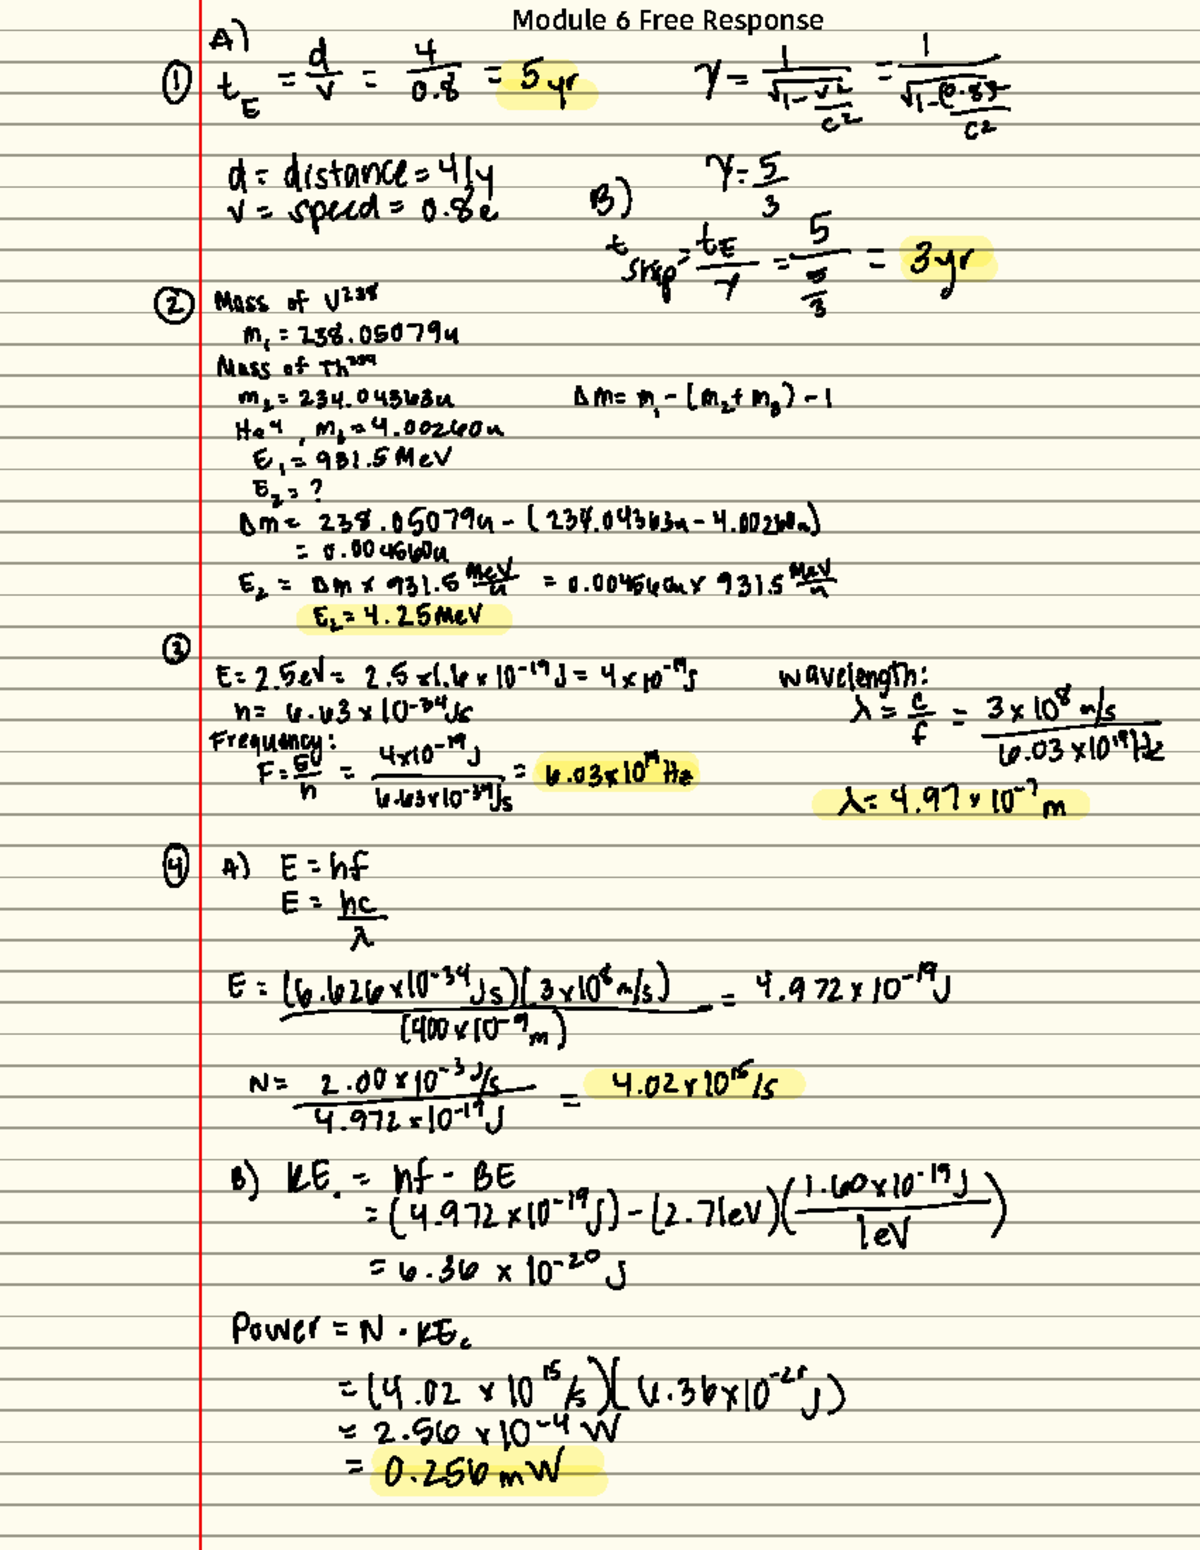 Module 6 Free Response
A)
① t_E = d/v = 4/0.8 = 5 yr
γ = 1/√(1-v²/c²) = 1/√(1-(0.8)²/c²)
d = distance = 4ly
v = speed = 0.8c
γ = 5/3
B)
t_ship = t_E/γ = 5/(5/3) = 3 yr
② Mass of U²³⁸
m₁ = 238.05079u
Mass of Th²³⁴
m₂ = 234.04363u
Δm = m₁ - (m₂ + m₃) - 1
He⁴, m₃ = 4.00260u
E₁ = 931.5 MeV
E₂ = ?
Δm = 238.05079u - (234.04363u - 4.00260u)
= 0.004560u
E₂ = Δm x 931.5 MeV/u = 0.004560u x 931.5 MeV/u
E₂ = 4.25 MeV
③
E = 2.5eV = 2.5 x 1.6 x 10⁻¹⁹J = 4 x 10⁻¹⁹J
h = 6.63 x 10⁻³⁴Js
Frequency:
F = E/h = 4x10⁻¹⁹J / 6.63x10⁻³⁴Js = 6.03x10¹⁴Hz
wavelength:
λ = c/f = 3 x 10⁸ m/s / 6.03 x 10¹⁴Hz
λ = 4.97 x 10⁻⁷m
④ A) E = hf
E = hc/λ
E = (6.626x10⁻³⁴Js)(3x10⁸m/s) / (400x10⁻⁹m) = 4.972x10⁻¹⁹J
N = 2.00x10⁻³J/s / 4.972x10⁻¹⁹J = 4.02x10¹⁵/s
B) KE. = hf - BE
= (4.972x10⁻¹⁹J) - (2.71eV)(1.60x10⁻¹⁹J / 1eV)
= 6.36 x 10⁻²⁰J
Power = N · KEe
= (4.02 x 10¹⁵/s)(6.36x10⁻²⁰J)
= 2.56 x 10⁻⁴ W
= 0.256 mW